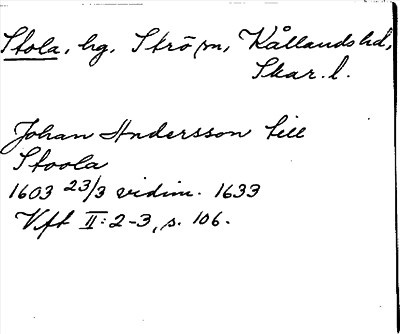 Stola, hg, Strö sn, Kållands hd,
Skar. l.
Johan Andersson till
Stoola
1603 23/3 vidim. 1633
Vft II: 2-3, s. 106.